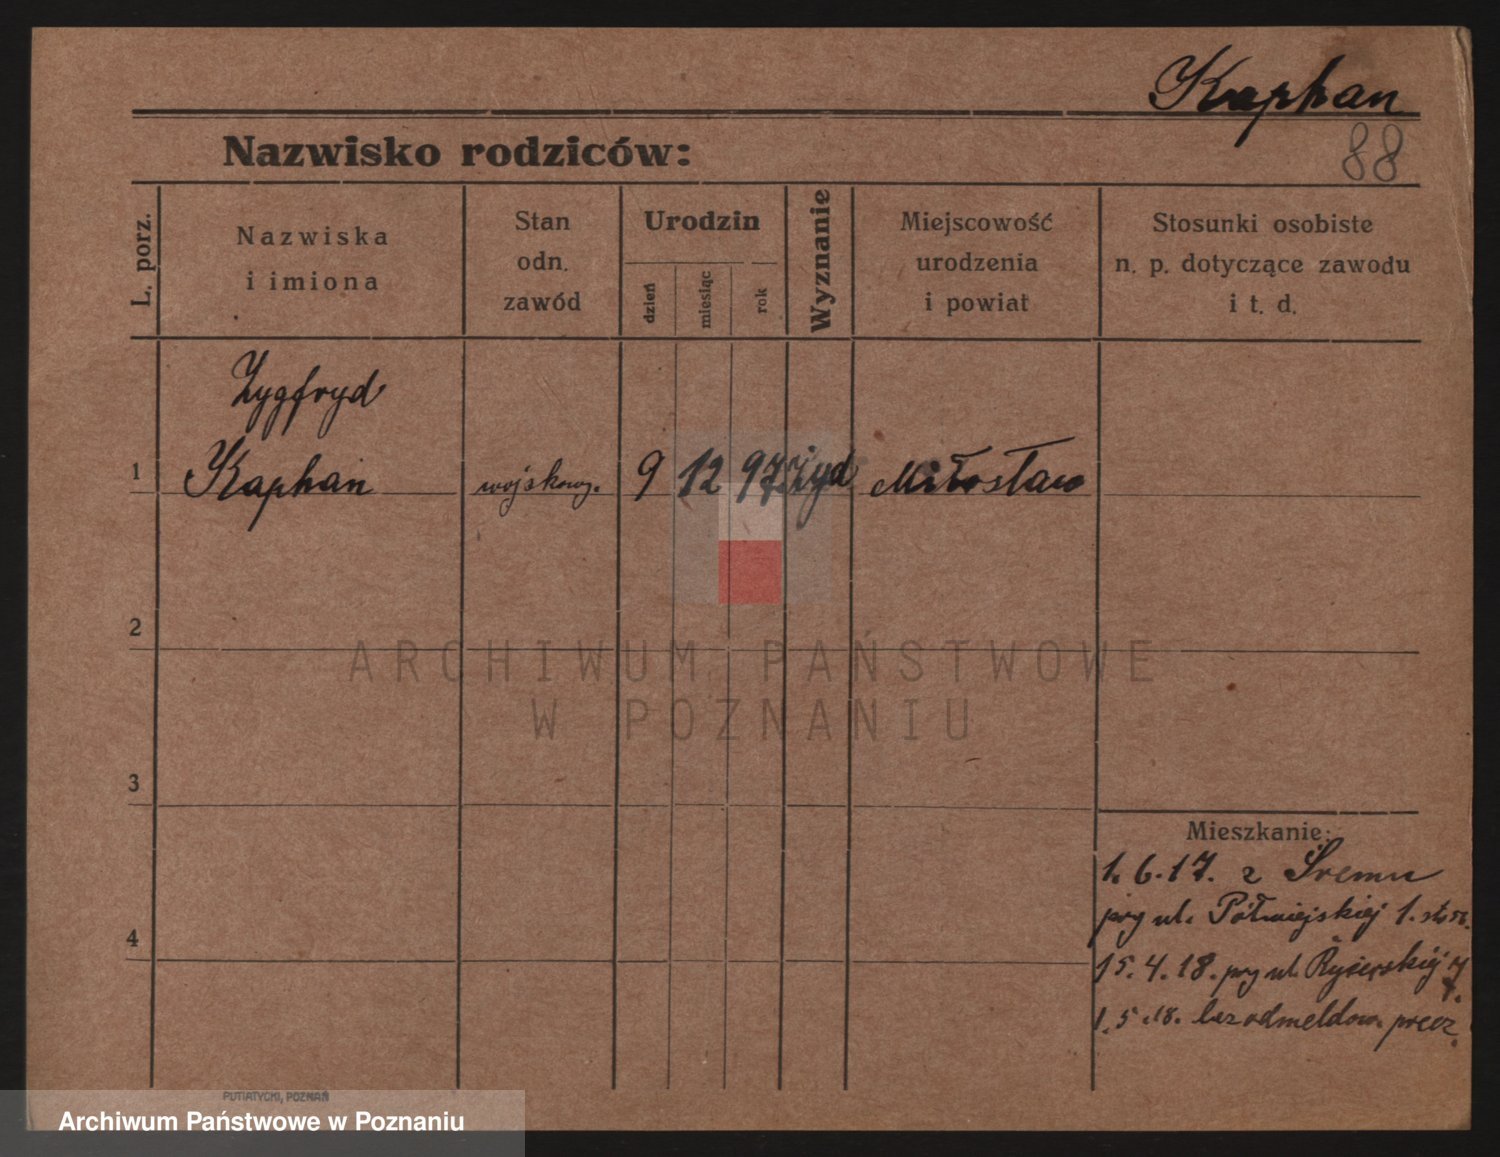 Kaphan
88
Nazwisko rodziców:
L. porz.
Nazwiska
i imiona
Stan
odn.
zawód
Urodzin
dzień
miesiąc
rok
Wyznanie
Miejscowość
urodzenia
i powiat
Stosunki osobiste
n. p. dotyczące zawodu
i t. d.
Zygfryd
1 Kaphan wojskowy. 9 12 97 żyd Miłosław
2
ARCHIWUM PAŃSTWOWE
W POZNANIU
3
Mieszkanie:
1. 6. 17. z Śremu
przy ul. Półwiejskiej 1.
4
15. 4. 18. przy ul. Rycerskiej
1. 5. 18. bez odmeldow. precz.
PUTIATYCKI, POZNAŃ
Archiwum Państwowe w Poznaniu